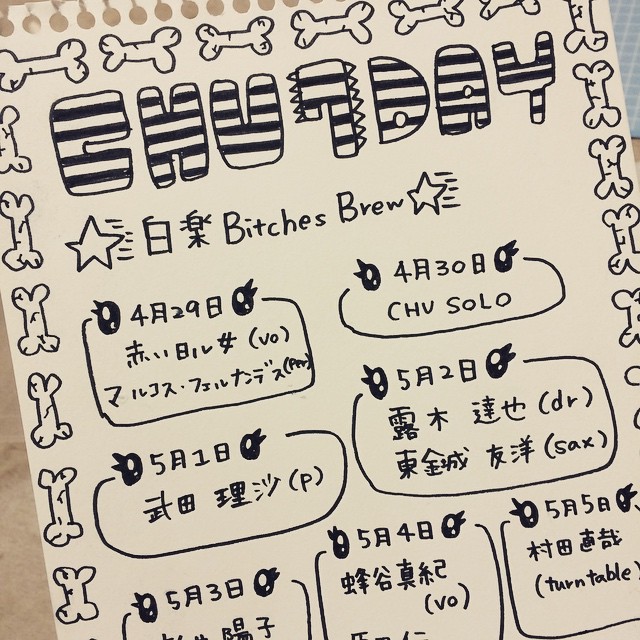 CHU7DAY
白楽 Bitches Brew
4月29日
赤い日ル女 (vo)
マルコス・フェルナンデス(Per)
4月30日
CHU SOLO
5月1日
武田 理沙 (p)
5月2日
露木 達也 (dr)
東金城 友洋 (sax)
5月3日
陽子
5月4日
蜂谷真紀
(vo)
5月5日
村田直哉
(turntable)